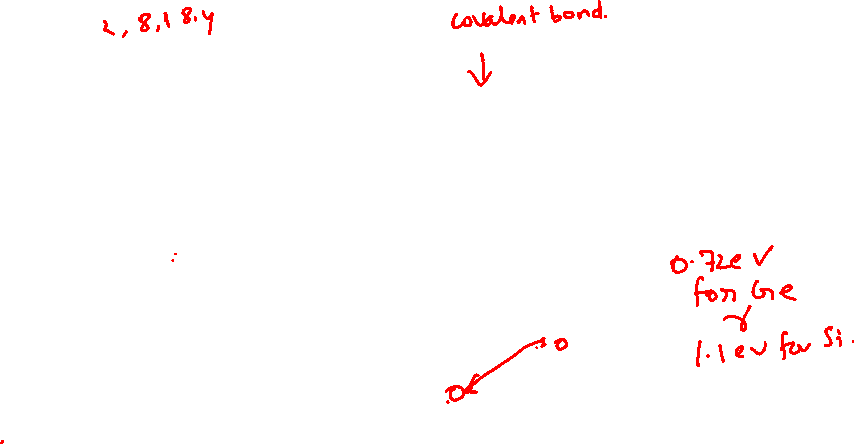 2, 8, 18, 4
covalent bond.
0.72eV
for Ge
&
1.1 eV for Si.